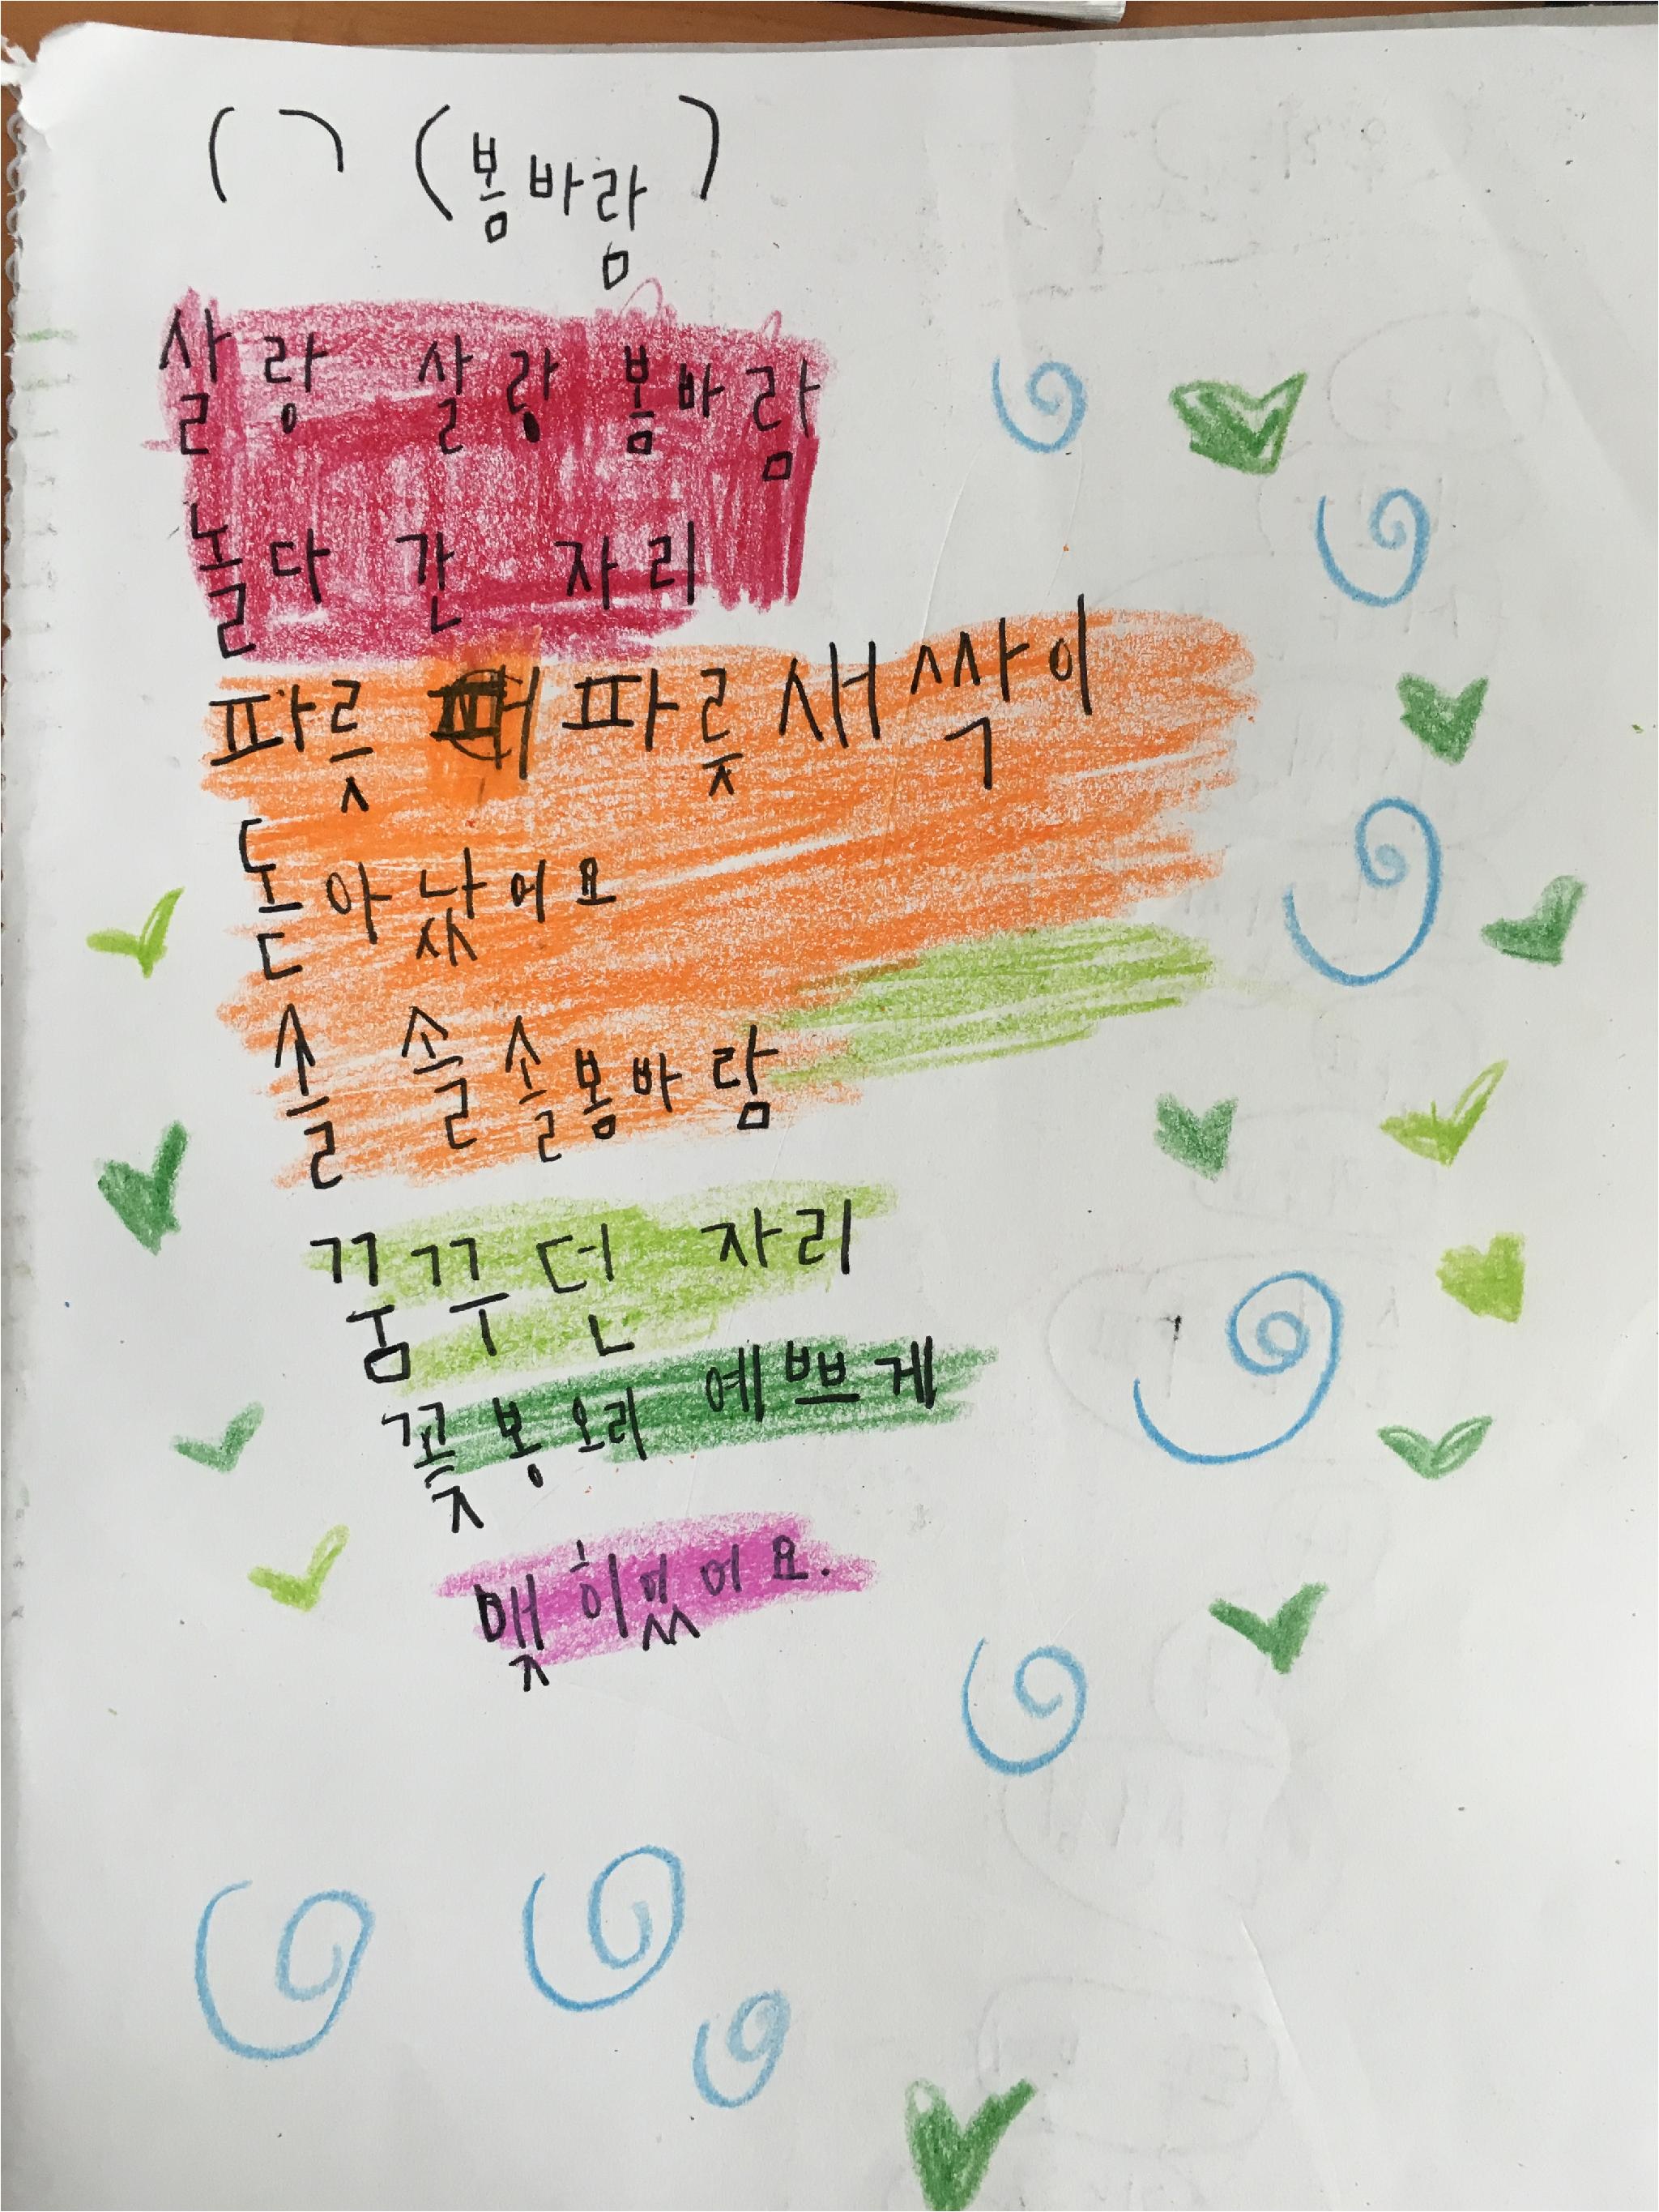 ( ) (봄바람)
살랑 살랑 봄바람
놀다 간 자리
파릇 파릇 새싹이
돋아났어요
솔 솔솔봄바람
꿈꾸던 자리
꽃봉오리 예쁘게
맺혔어요.